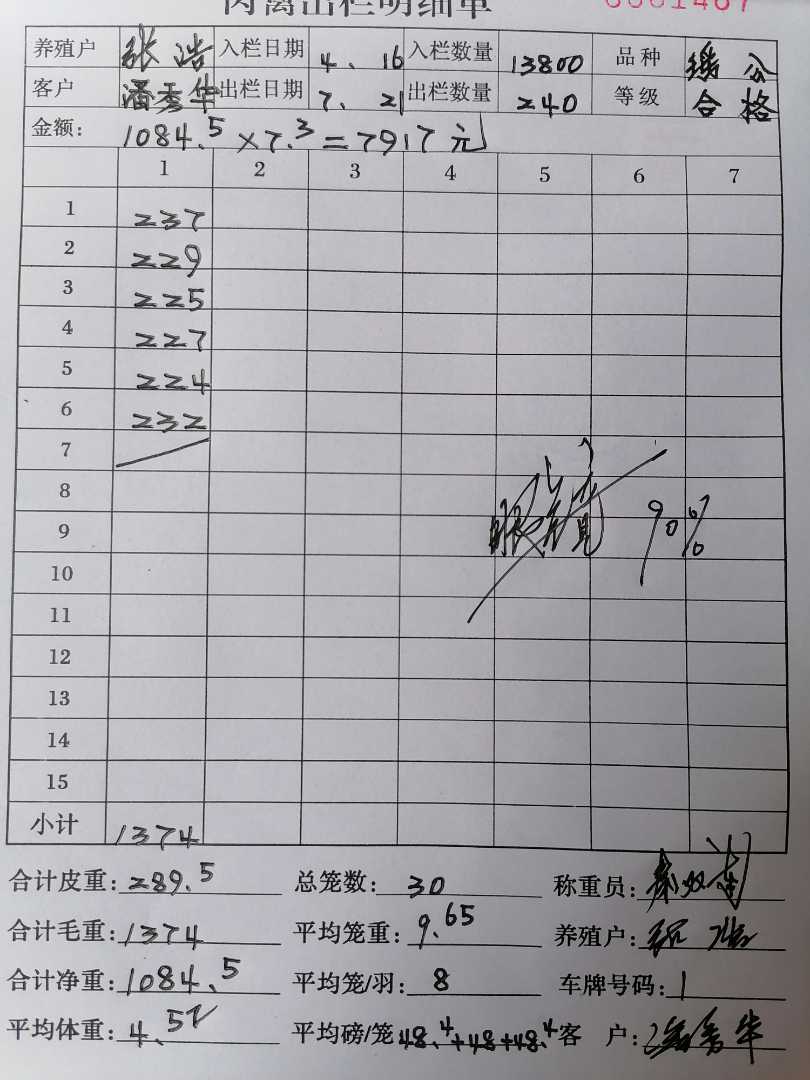 肉禽出栏明细单 0001467
养殖户 张浩 入栏日期 4、16 入栏数量 13800 品种 公
客户 潘秀华 出栏日期 7、21 出栏数量 240 等级 合格
金额: 1084.5×7.3=7917元
1 2 3 4 5 6 7
1 237
2 229
3 225
4 227
5 224
6 232
7
8
9 90%
10
11
12
13
14
15
小计 1374
合计皮重: 289.5 总笼数: 30 称重员:
合计毛重: 1374 平均笼重: 9.65 养殖户: 张浩
合计净重: 1084.5 平均笼/羽: 8 车牌号码: 1
平均体重: 4.52 平均磅/笼 48.4+48+48.4 客 户: 潘秀华